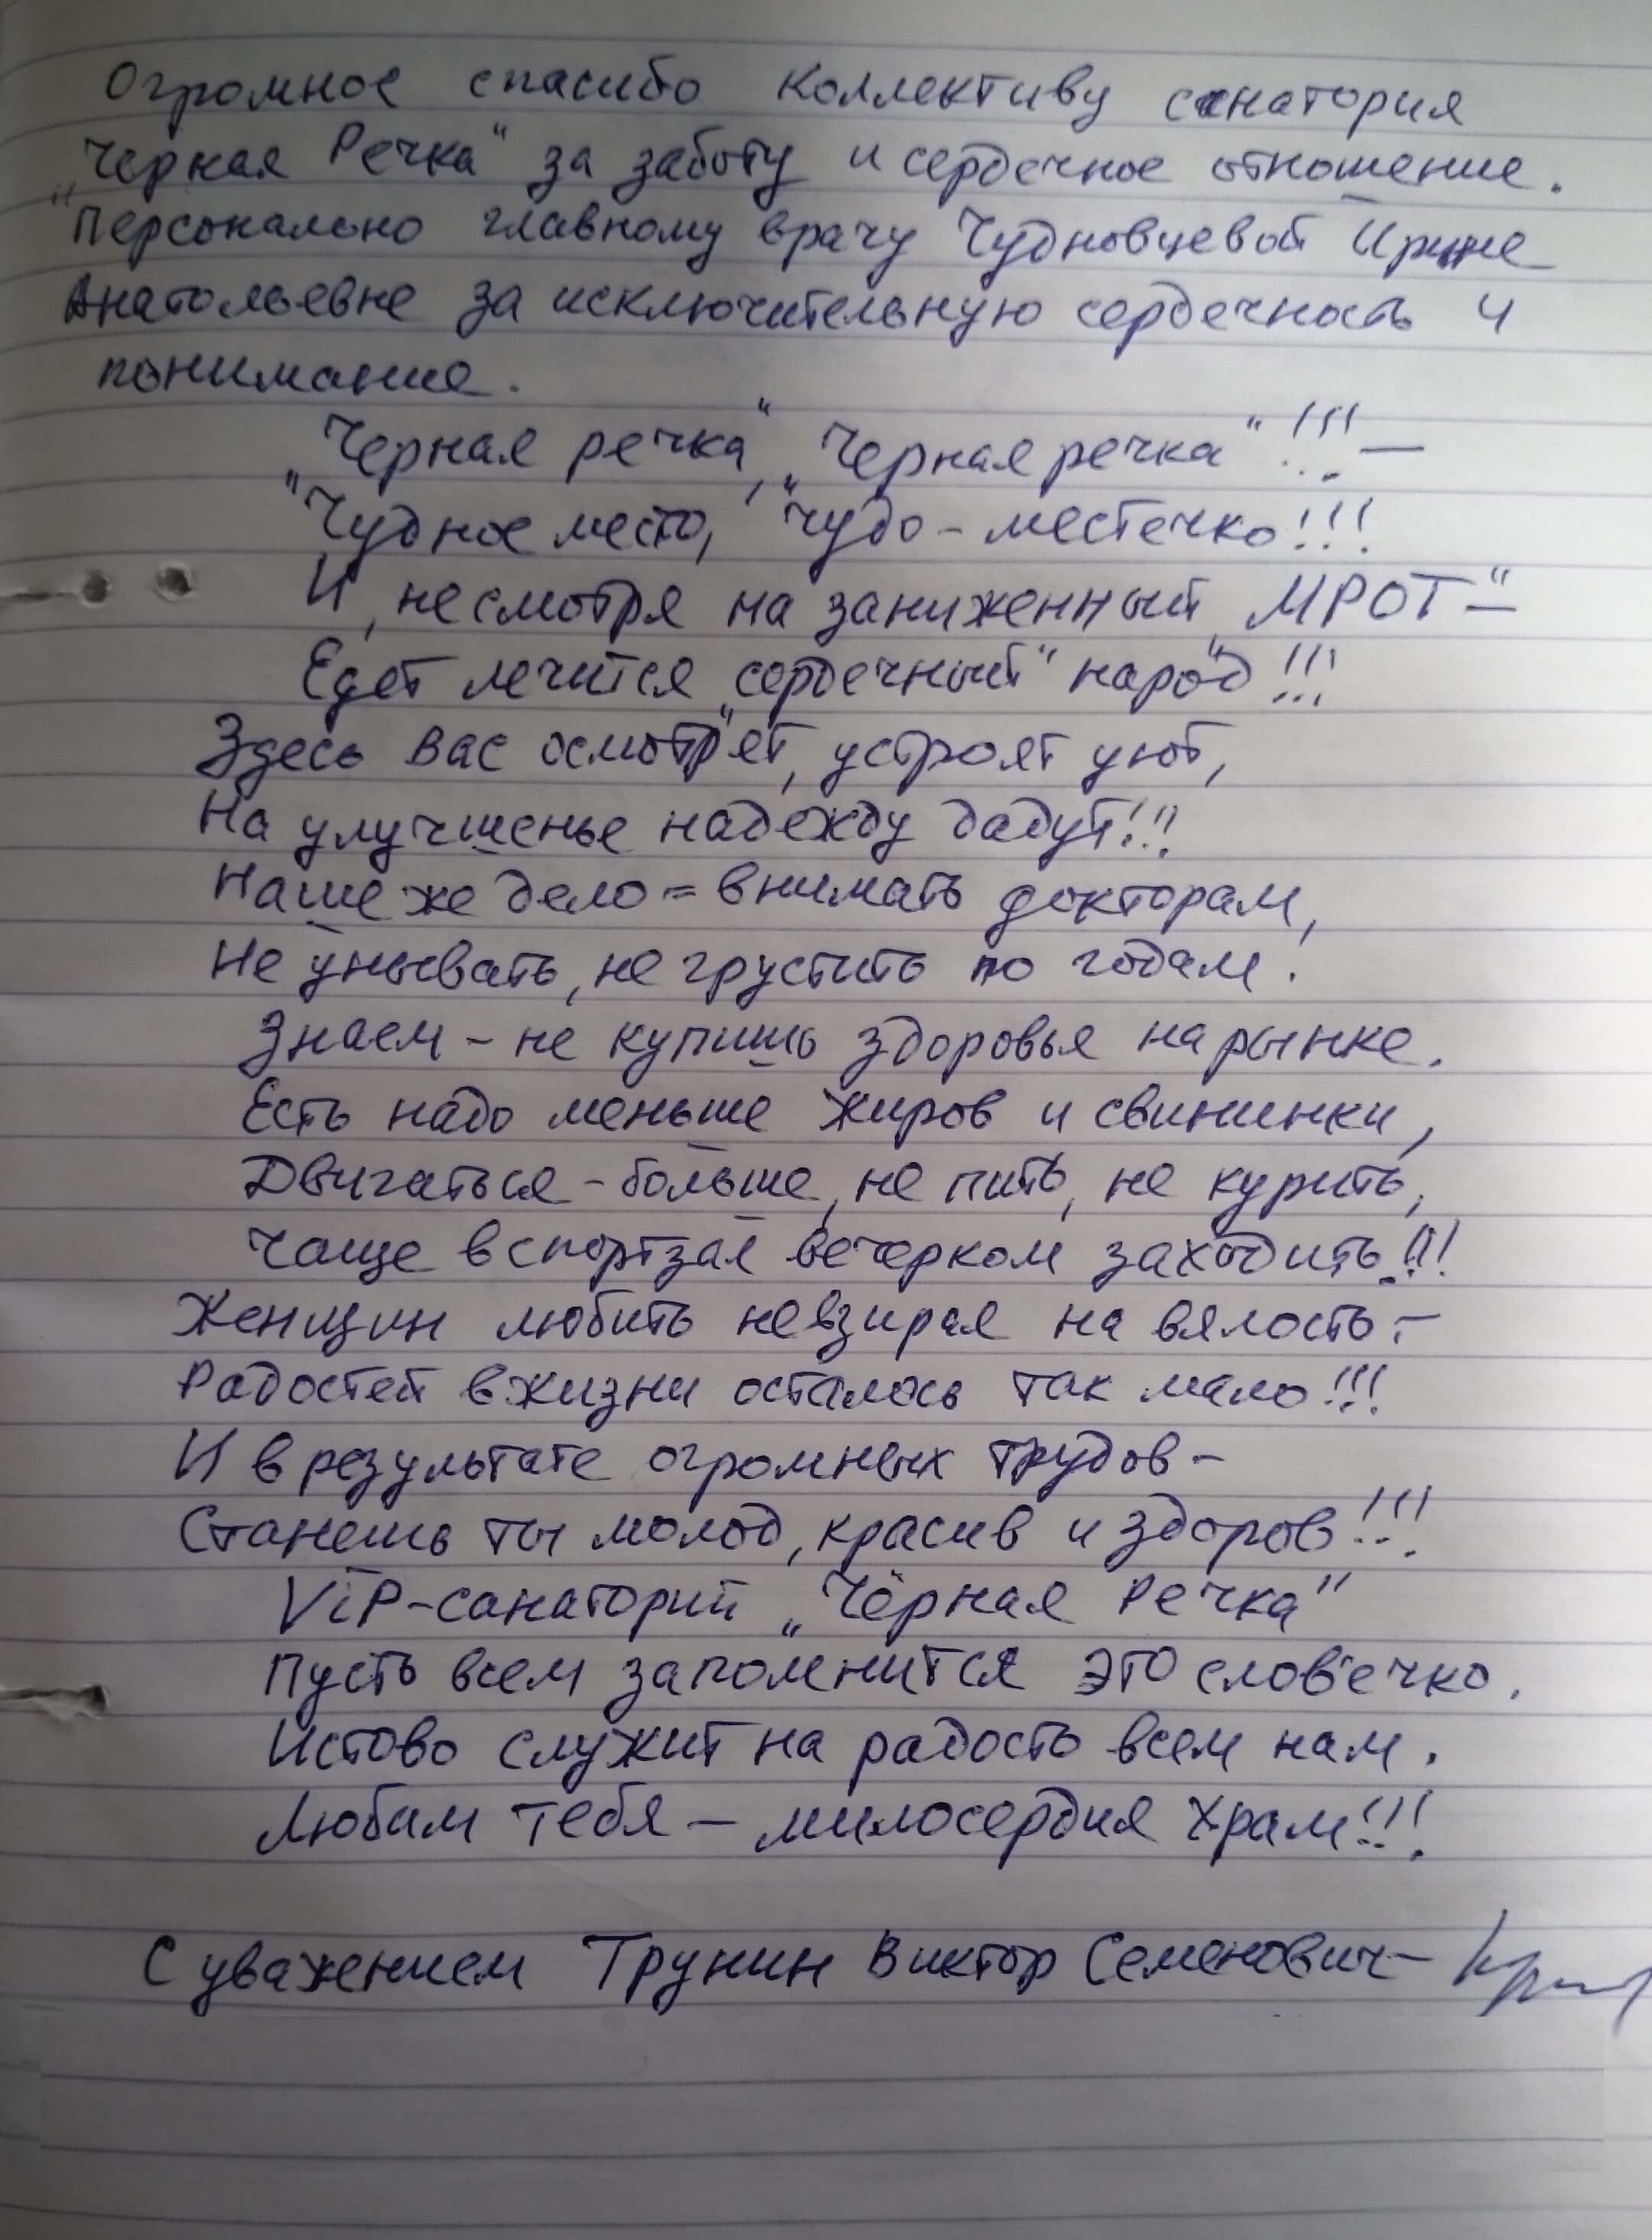 Огромное спасибо коллективу санатория
„Черная Речка“ за заботу и сердечное отношение.
Персонально главному врачу Чудновцевой Ирине
Анатольевне за исключительную сердечность и
понимание.
„Черная речка“, „Черная речка“!!! —
Чудное место, чудо-местечко!!!
И, несмотря на заниженный „МРОТ“ —
Едет лечится „сердечный“ народ!!!
Здесь вас осмотрят, устроят уют,
На улучшенье надежду дадут!!!
Наше же дело = внимать докторам,
Не унывать, не грустить по годам.
Знаем - не купишь здоровья на рынке.
Есть надо меньше жиров и свининки,
Двигаться - больше, не пить, не курить,
Чаще в спортзал вечерком заходить!!!
Женщин любить невзирая на вялость -
Радостей в жизни осталось так мало!!!
И в результате огромных трудов -
Станешь ты молод, красив и здоров!!!
ViP-санаторий „Чёрная Речка“
Пусть всем запомнится это словечко.
Истово служит на радость всем нам.
Любим тебя — милосердия храм!!!
С уважением Трунин Виктор Семенович -